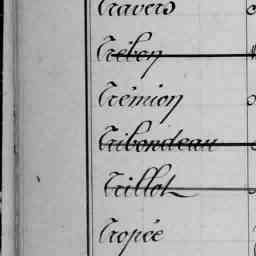 Travers
Trébon
Trémion
Tribondeau
Trillot
Tropée